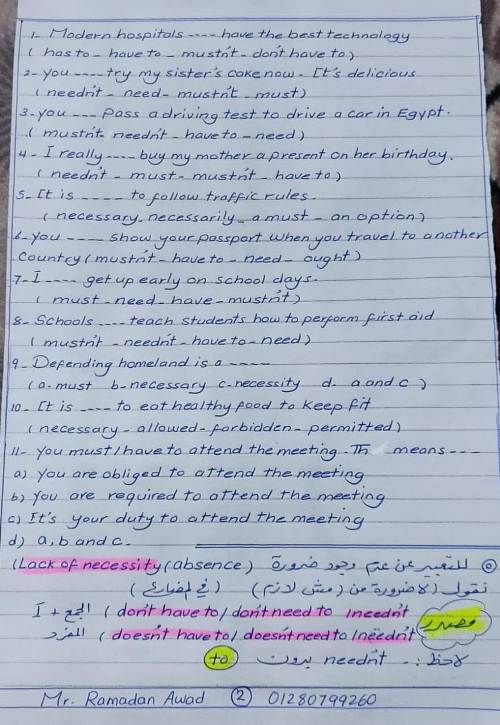 1- Modern hospitals ---- have the best technology
( has to - have to - mustn't - don't have to)
2- you ---- try my sister's cake now. It's delicious
(needn't - need - mustn't - must)
3- you --- pass a driving test to drive a car in Egypt.
(mustn't - needn't - have to - need)
4- I really ---- buy my mother a present on her birthday.
(needn't - must - mustn't - have to)
5- It is ---- to follow traffic rules.
(necessary, necessarily - a must - an option)
6- you ---- show your passport when you travel to another
country (mustn't - have to - need - ought)
7- I ---- get up early on school days.
( must - need - have - mustn't)
8- Schools ---- teach students how to perform first aid
( mustn't - needn't - have to - need)
9- Defending homeland is a ----
(a- must b- necessary c- necessity d- a and c )
10- It is ---- to eat healthy food to keep fit
(necessary - allowed - forbidden - permitted)
11- you must/have to attend the meeting. Th means ---
a) you are obliged to attend the meeting
b) you are required to attend the meeting
c) It's your duty to attend the meeting
d) a, b and c.
(Lack of necessity (absence) للتعبير عن عدم وجود ضرورة
نقول (لا ضرورة من) (مش لازم) (في المضارع)
مصدر ( don't have to / don't need to / needn't الجمع + I
( doesn't have to / doesn't need to / needn't المفرد
لاحظ: needn't بدون to
Mr. Ramadan Awad 2 01280799260